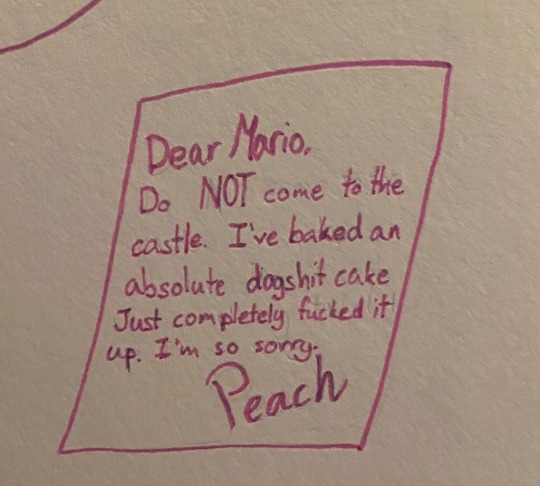 Dear Mario,
Do NOT come to the
castle. I've baked an
absolute dogshit cake
Just completely fucked it
up. I'm so sorry.
Peach